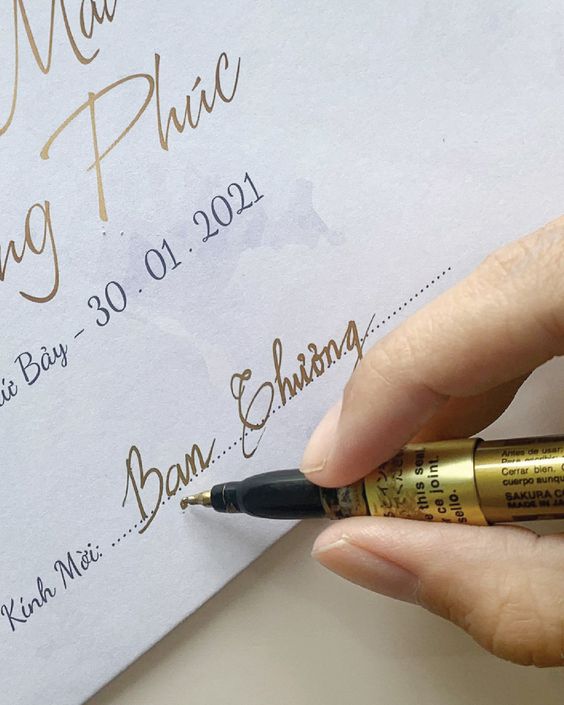 Mai
ng Phúc
ứ Bảy – 30 . 01 . 2021
Kính Mời: Bạn Thương
this seal
ce joint.
sello.
Antes de usar
Cerrar bien,
cuerpo aunque
SAKURA
MADE IN